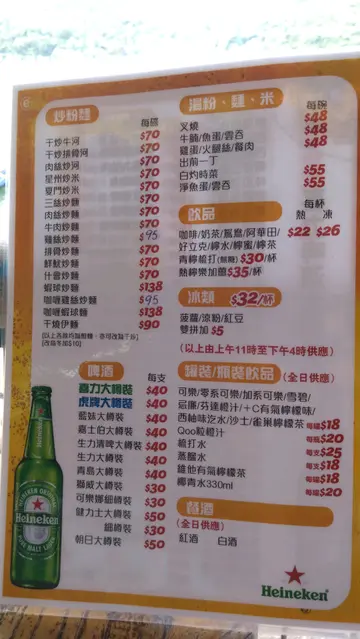 炒粉麵
每碟
干炒牛河 $70
干炒排骨河 $70
肉絲炒河 $70
星州炒米 $70
廈門炒米 $70
三絲炒麵 $70
肉絲炒麵 $70
牛肉炒麵 $70
雞絲炒麵 $95
排骨炒麵 $70
鮮魷炒麵 $70
什會炒麵 $70
蝦球炒麵 $138
咖喱雞絲炒麵 $95
咖喱蝦球麵 $138
干燒伊麵 $90
啤酒
每支
喜力大樽裝 $40
虎牌大樽裝 $40
藍妹大樽裝 $40
嘉士伯大樽裝 $40
生力清啤大樽裝 $40
生力大樽裝 $40
青島大樽裝 $40
獅威大樽裝 $30
可樂娜細樽裝 $30
健力士大樽裝 $50
細樽裝 $30
朝日大樽裝 $50
湯粉、麵、米
每碗
叉燒 $48
牛腩/魚蛋/雲吞 $48
雞蛋/火腿絲/餐肉 $48
出前一丁
白灼時菜 $55
淨魚蛋/雲吞 $55
飲品
每杯
熱 凍
咖啡/奶茶/鴛鴦/阿華田/ $22 $26
好立克/檸水/檸蜜/檸茶
青檸梳打(無糖) $30/杯
熱檸樂加薑$35/杯
冰類 $32/杯
菠蘿/涼粉/紅豆
雙拼加 $5
(以上由上午11時至下午4時供應)
罐裝/瓶裝飲品 (全日供應)
可樂/零系可樂/加系可樂/雪碧/
忌廉/芬達橙汁/+C有氣檸檬味/
西柚味汽水/沙士/雀巢檸檬茶 每罐$18
Qoo粒橙汁 每瓶$20
梳打水 每支$25
蒸餾水 每支$18
維他有氣檸檬茶 每罐$18
椰青水330ml 每罐$20
餐酒
(全日供應)
紅酒 白酒
Heineken
Heineken